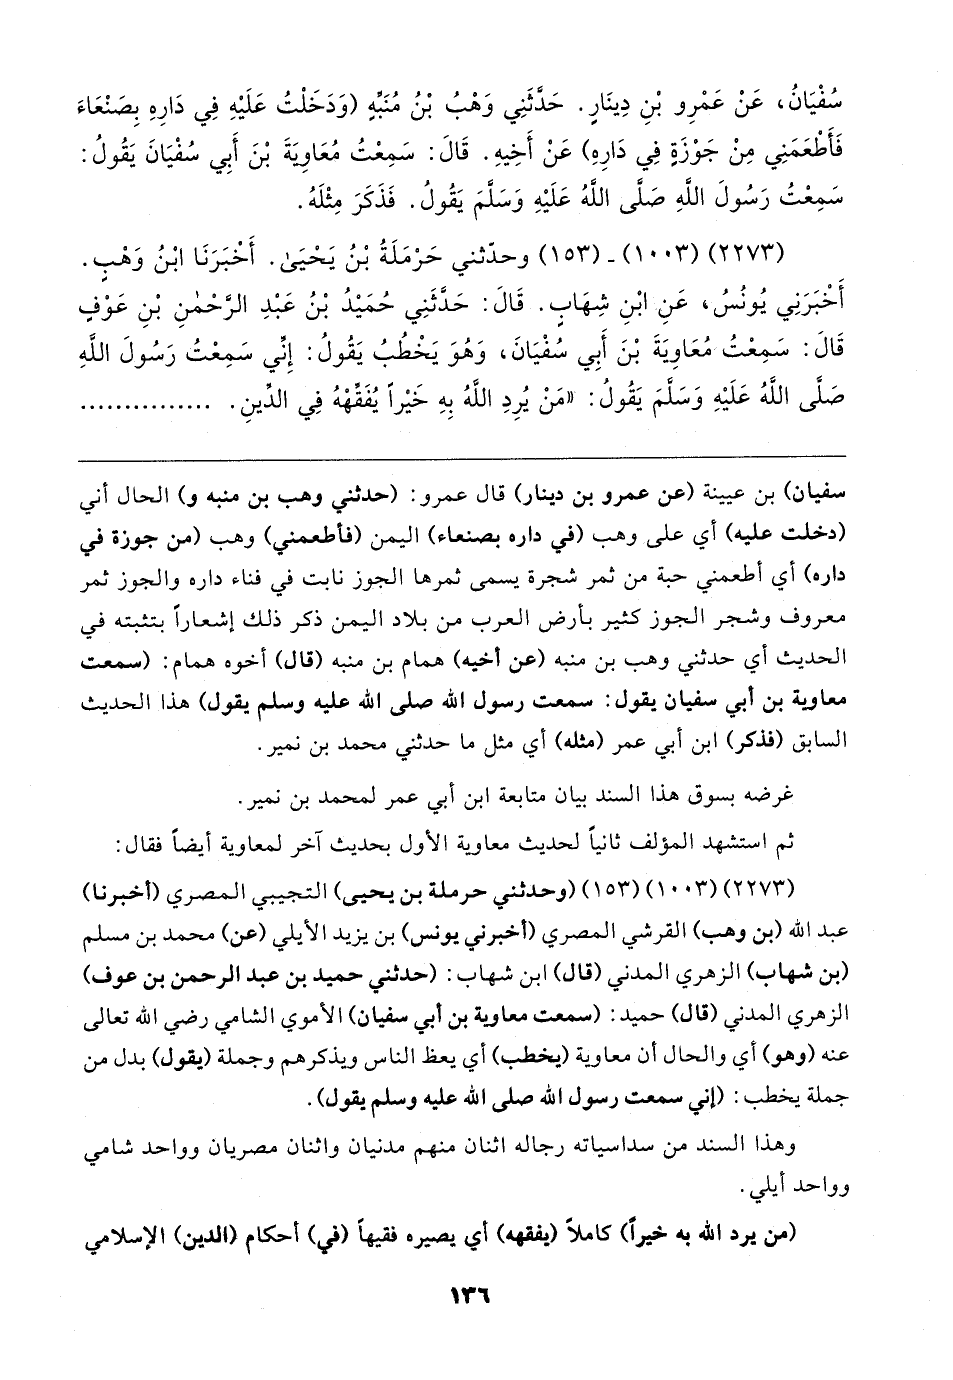 سُفْيَانُ، عَنْ عَمْرِو بْنِ دِينَارٍ. حَدَّثَنِي وَهْبُ بْنُ مُنَبِّهٍ (وَدَخَلْتُ عَلَيْهِ فِي دَارِهِ بِصَنْعَاءَ
فَأَطْعَمَنِي مِنْ جَوْزَةٍ فِي دَارِهِ) عَنْ أَخِيهِ. قَالَ: سَمِعْتُ مُعَاوِيَةَ بْنَ أَبِي سُفْيَانَ يَقُولُ:
سَمِعْتُ رَسُولَ اللَّهِ صَلَّى اللَّهُ عَلَيْهِ وَسَلَّمَ يَقُولُ. فَذَكَرَ مِثْلَهُ.
(٢٢٧٣) (١٠٠٣) ـ (١٥٣) وحدّثني حَرْمَلَةُ بْنُ يَحْيَىٰ. أَخْبَرَنَا ابْنُ وَهْبٍ.
أَخْبَرَنِي يُونُسُ، عَنِ ابْنِ شِهَابٍ. قَالَ: حَدَّثَنِي حُمَيْدُ بْنُ عَبْدِ الرَّحْمٰنِ بْنِ عَوْفٍ
قَالَ: سَمِعْتُ مُعَاوِيَةَ بْنَ أَبِي سُفْيَانَ، وَهُوَ يَخْطُبُ يَقُولُ: إِنِّي سَمِعْتُ رَسُولَ اللَّهِ
صَلَّى اللَّهُ عَلَيْهِ وَسَلَّمَ يَقُولُ: «مَنْ يُرِدِ اللَّهُ بِهِ خَيْراً يُفَقِّهْهُ فِي الدِّينِ. ...............
سفيان) بن عيينة (عن عمرو بن دينار) قال عمرو: (حدثني وهب بن منبه و) الحال أني
(دخلت عليه) أي على وهب (في داره بصنعاء) اليمن (فأطعمني) وهب (من جوزة في
داره) أي أطعمني حبة من ثمر شجرة يسمى ثمرها الجوز نابت في فناء داره والجوز ثمر
معروف وشجر الجوز كثير بأرض العرب من بلاد اليمن ذكر ذلك إشعاراً بتثبته في
الحديث أي حدثني وهب بن منبه (عن أخيه) همام بن منبه (قال) أخوه همام: (سمعت
معاوية بن أبي سفيان يقول: سمعت رسول الله صلى الله عليه وسلم يقول) هذا الحديث
السابق (فذكر) ابن أبي عمر (مثله) أي مثل ما حدثني محمد بن نمير.
غرضه بسوق هذا السند بيان متابعة ابن أبي عمر لمحمد بن نمير.
ثم استشهد المؤلف ثانياً لحديث معاوية الأول بحديث آخر لمعاوية أيضاً فقال:
(٢٢٧٣) (١٠٠٣) (١٥٣) (وحدثني حرملة بن يحيى) التجيبي المصري (أخبرنا)
عبد الله (بن وهب) القرشي المصري (أخبرني يونس) بن يزيد الأيلي (عن) محمد بن مسلم
(بن شهاب) الزهري المدني (قال) ابن شهاب: (حدثني حميد بن عبد الرحمن بن عوف)
الزهري المدني (قال) حميد: (سمعت معاوية بن أبي سفيان) الأموي الشامي رضي الله تعالى
عنه (وهو) أي والحال أن معاوية (يخطب) أي يعظ الناس ويذكرهم وجملة (يقول) بدل من
جملة يخطب: (إني سمعت رسول الله صلى الله عليه وسلم يقول).
وهذا السند من سداسياته رجاله اثنان منهم مدنيان واثنان مصريان وواحد شامي
وواحد أيلي.
(من يرد الله به خيراً) كاملاً (يفقهه) أي يصيره فقيهاً (في) أحكام (الدين) الإسلامي
١٣٦